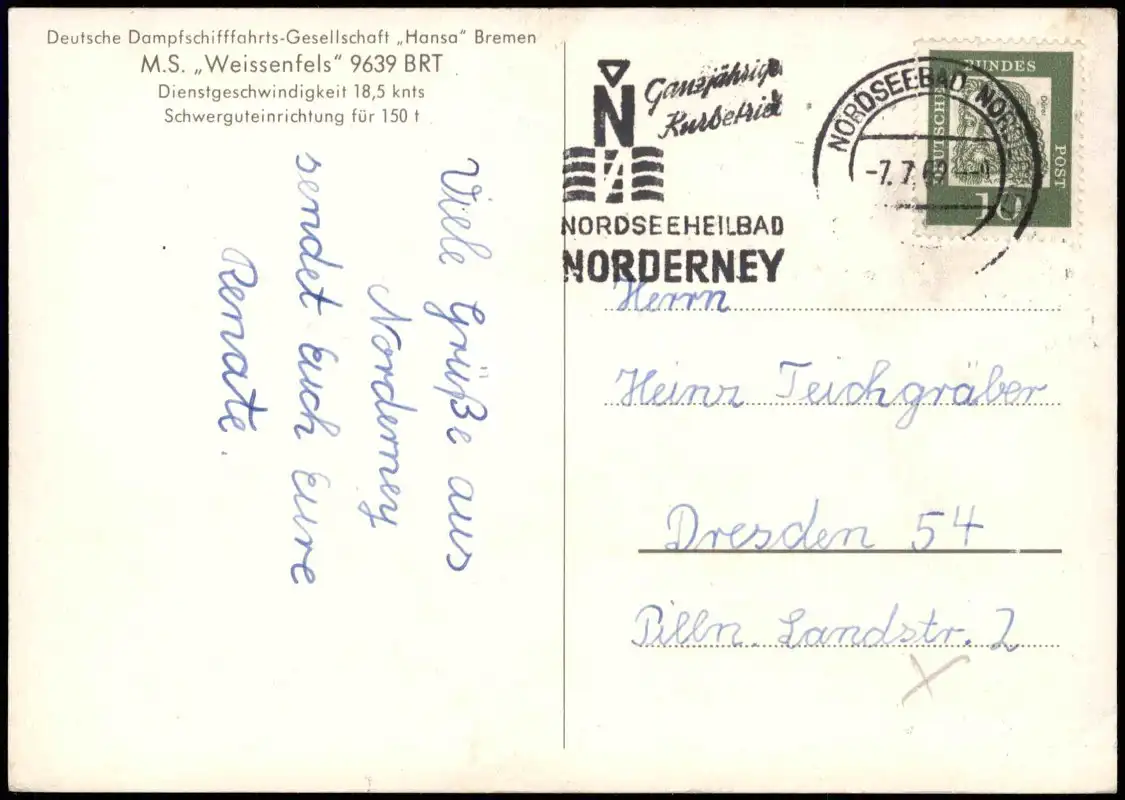 Deutsche Dampfschifffahrts-Gesellschaft „Hansa" Bremen
M.S. „Weissenfels" 9639 BRT
Dienstgeschwindigkeit 18,5 knts
Schwerguteinrichtung für 150 t
Viele Grüße aus
Norderney
sendet Euch Eure
Renate.
N
Ganzjähriger
Kurbetrieb
NORDSEEHEILBAD
NORDERNEY
NORDSEEBAD
-7.7.
DEUTSCHE
BUNDES
POST
Dürer
10
Herrn
Heinz Teichgräber
Dresden 54
Pilln. Landstr. 2